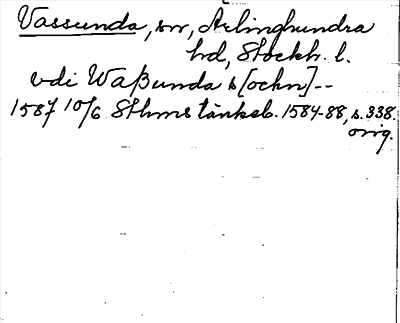 Vassunda, sn, Ärlinghundra
hd, Stockh. l.
vdi Waßunda s[ochn]--
1587 10/6 Sthms tänkeb. 1584-88, s. 338.
orig.